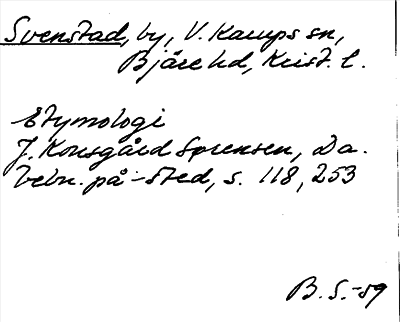 Svenstad, by, V. Karups sn,
Bjäre hd, Krist. l.
Etymologi
J. Kousgård Sørensen, Da.
bebn. på -sted, s. 118, 253
B. S.-59